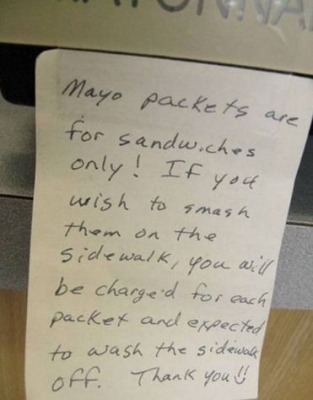 Mayo packets are
for sandwiches
only! If you
wish to smash
them on the
sidewalk, you will
be charged for each
packet and expected
to wash the sidewalk
off. Thank you!!